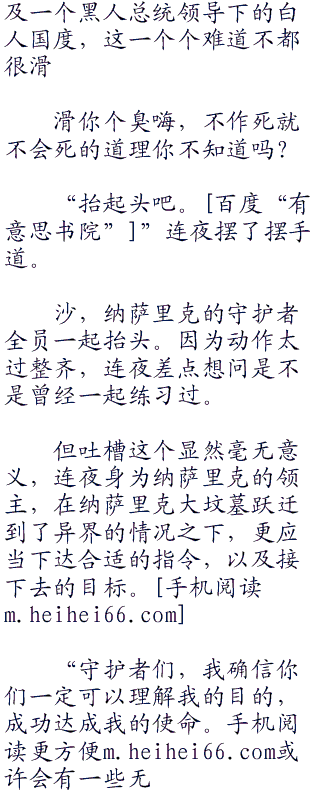 及一个黑人总统领导下的白
人国度，这一个个难道不都
很滑
滑你个臭嗨，不作死就
不会死的道理你不知道吗？
“抬起头吧。[百度“有
意思书院”]”连夜摆了摆手
道。
沙，纳萨里克的守护者
全员一起抬头。因为动作太
过整齐，连夜差点想问是不
是曾经一起练习过。
但吐槽这个显然毫无意
义，连夜身为纳萨里克的领
主，在纳萨里克大坟墓跃迁
到了异界的情况之下，更应
当下达合适的指令，以及接
下去的目标。[手机阅读
m.heihei66.com]
“守护者们，我确信你
们一定可以理解我的目的，
成功达成我的使命。手机阅
读更方便m.heihei66.com或
许会有一些无